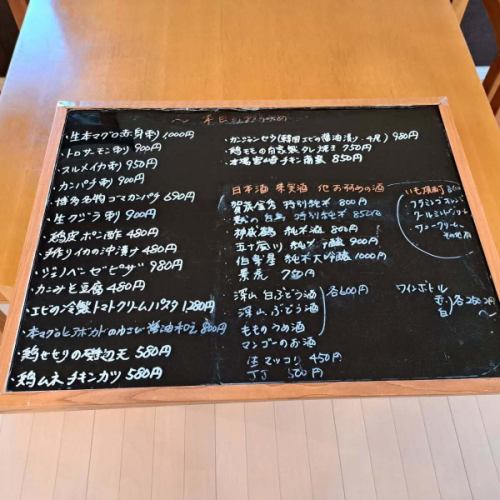 〜 本日
・生本マグロ赤身刺 1000円
・トロサーモン刺 900円
・スルメイカ刺 950円
・カンパチ刺 900円
・博多名物ゴマカンパチ 690円
・生クジラ刺 900円
・鶏皮ポン酢 480円
・ホタルイカの沖漬け 480円
・ジェノベーゼピザ 980円
・カニみそ豆腐 480円
・エビの冷製トマトクリームパスタ 1280円
・本マグロとアボカドのゆず醤油和え 800円
・鶏セセリの磯辺天 580円
・鶏ムネチキンカツ 580円
・カンジャンセウ(韓国エビの醤油漬け・4尾) 980円
・鶏モモの自家製タレ焼き 750円
・本場宮崎チキン南蛮 850円
日本酒 果実酒 他おすすめの酒
賀茂金秀 特別純米 800円
特別純米 850円
神蔵 純米酒 800円
五十嵐川 純米吟醸 900円
伯楽星 純米大吟醸 1000円
景虎 780円
深山 白ぶどう酒
深山 ぶどう酒
もものうめ酒
マンゴーのお酒
各600円
生マッコリ 450円
JJ 500円
いも焼酎
フラミンゴオレンジ
クールミントグリーン
その他
ワインボトル
赤
白